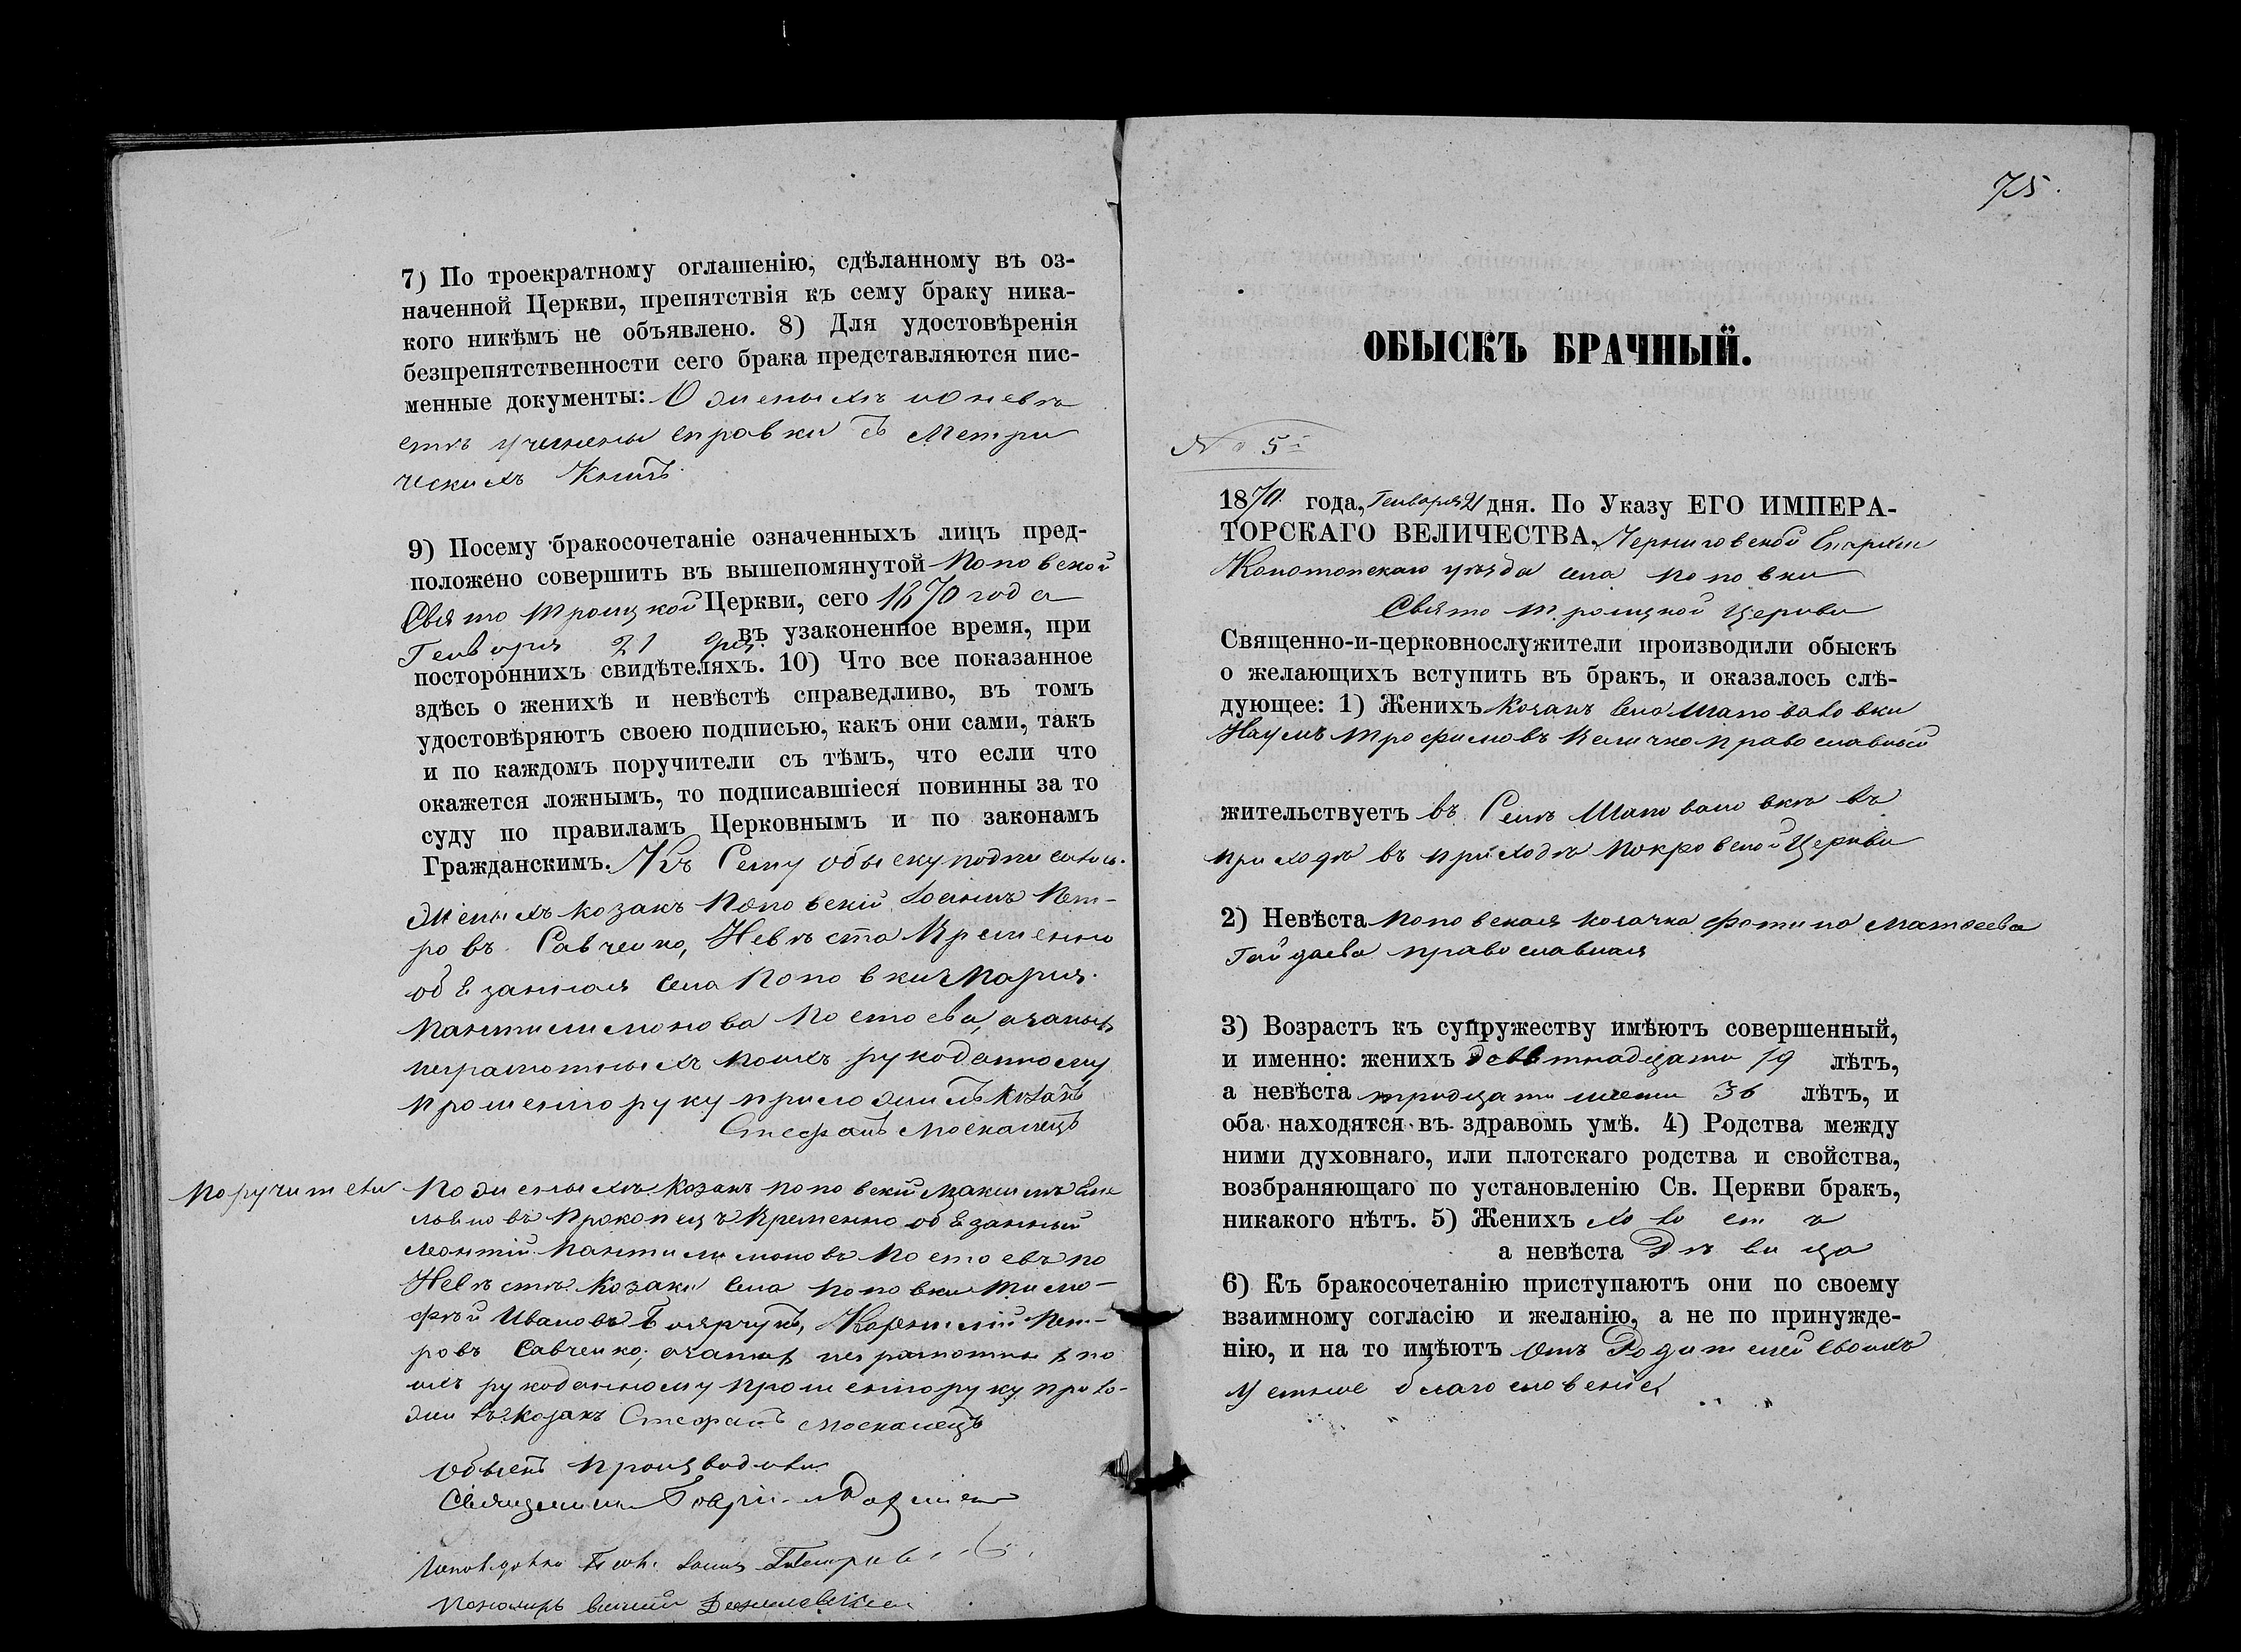 7) По троекратному оглашенію, сдѣланному въ оз-
наченной Церкви, препятствія къ сему браку ника-
кого никѣмъ не объявлено. 8) Для удостовѣренія
безпрепятственности сего брака представляются пис-
менные документы: О женихѣ и о невѣ
стѣ учинены справки съ Метри
ческихъ Книгъ.
9) Посему бракосочетаніе означенныхъ лицъ пред-
положено совершить въ вышепомянутой Поповской
Свято Троицкой Церкви, сего 1870 года
Генваря 21 дня въ узаконенное время, при
постороннихъ свидѣтеляхъ. 10) Что все показанное
здѣсь о женихѣ и невѣстѣ справедливо, въ томъ
удостовѣряютъ своею подписью, какъ они сами, такъ
и по каждомъ поручители съ тѣмъ, что если что
окажется ложнымъ, то подписавшіеся повинны за то
суду по правиламъ Церковнымъ и по законамъ
Гражданскимъ. Къ Сему обыску подписались
женихъ козакъ Поповскій Іоаннъ Пет-
ровъ Савченко, Невѣста Временно
обязанная села Поповки Марія
Пантилимонова Постоева, а за нихъ
неграмотныхъ по ихъ рукоданному
прошенію руку приложилъ козакъ
Стефанъ Москалецъ
Поручители По женихѣ козакъ поповскій Максимъ
Прокопецъ Временно обязанный
Леонтій Пантилимоновъ Постоевъ по
Невѣстѣ Козаки села Поповки Тимо-
фѣй Ивановъ Боярчукъ, Корнилій Пет-
ровъ Савченко, а за нихъ неграмотныхъ по
ихъ рукоданному прошенію руку прило-
жилъ козакъ Стефанъ Москалецъ
Обыскъ Производили
Священникъ
Пономарь
75.
ОБЫСКЪ БРАЧНЫЙ.
№ 5й
1870 года, Генваря 21 дня. По Указу ЕГО ИМПЕРА-
ТОРСКАГО ВЕЛИЧЕСТВА, Черниговской Епархіи
Конотопскаго уѣзда села Поповки
Свято Троицкой Церкви
Священно-и-церковнослужители производили обыскъ
о желающихъ вступить въ бракъ, и оказалось слѣ-
дующее: 1) Женихъ Козакъ села Шаповаловки
Наумъ Трофимовъ Величко православный
жительствуетъ въ Селѣ Шаповаловкѣ въ
приходѣ въ приходѣ Покровской Церкви
2) Невѣста Поповская козачка Фотина Матѳеева
Гайдаева православная
3) Возрастъ къ супружеству имѣютъ совершенный,
и именно: женихъ девятнадцати 19 лѣтъ,
а невѣста тридцати шести 36 лѣтъ, и
оба находятся въ здравомъ умѣ. 4) Родства между
ними духовнаго, или плотскаго родства и свойства,
возбраняющаго по установленію Св. Церкви бракъ,
никакого нѣтъ. 5) Женихъ холостъ
а невѣста Дѣвица
6) Къ бракосочетанію приступаютъ они по своему
взаимному согласію и желанію, а не по принужде-
нію, и на то имѣютъ отъ Родителей своихъ
устное благословеніе